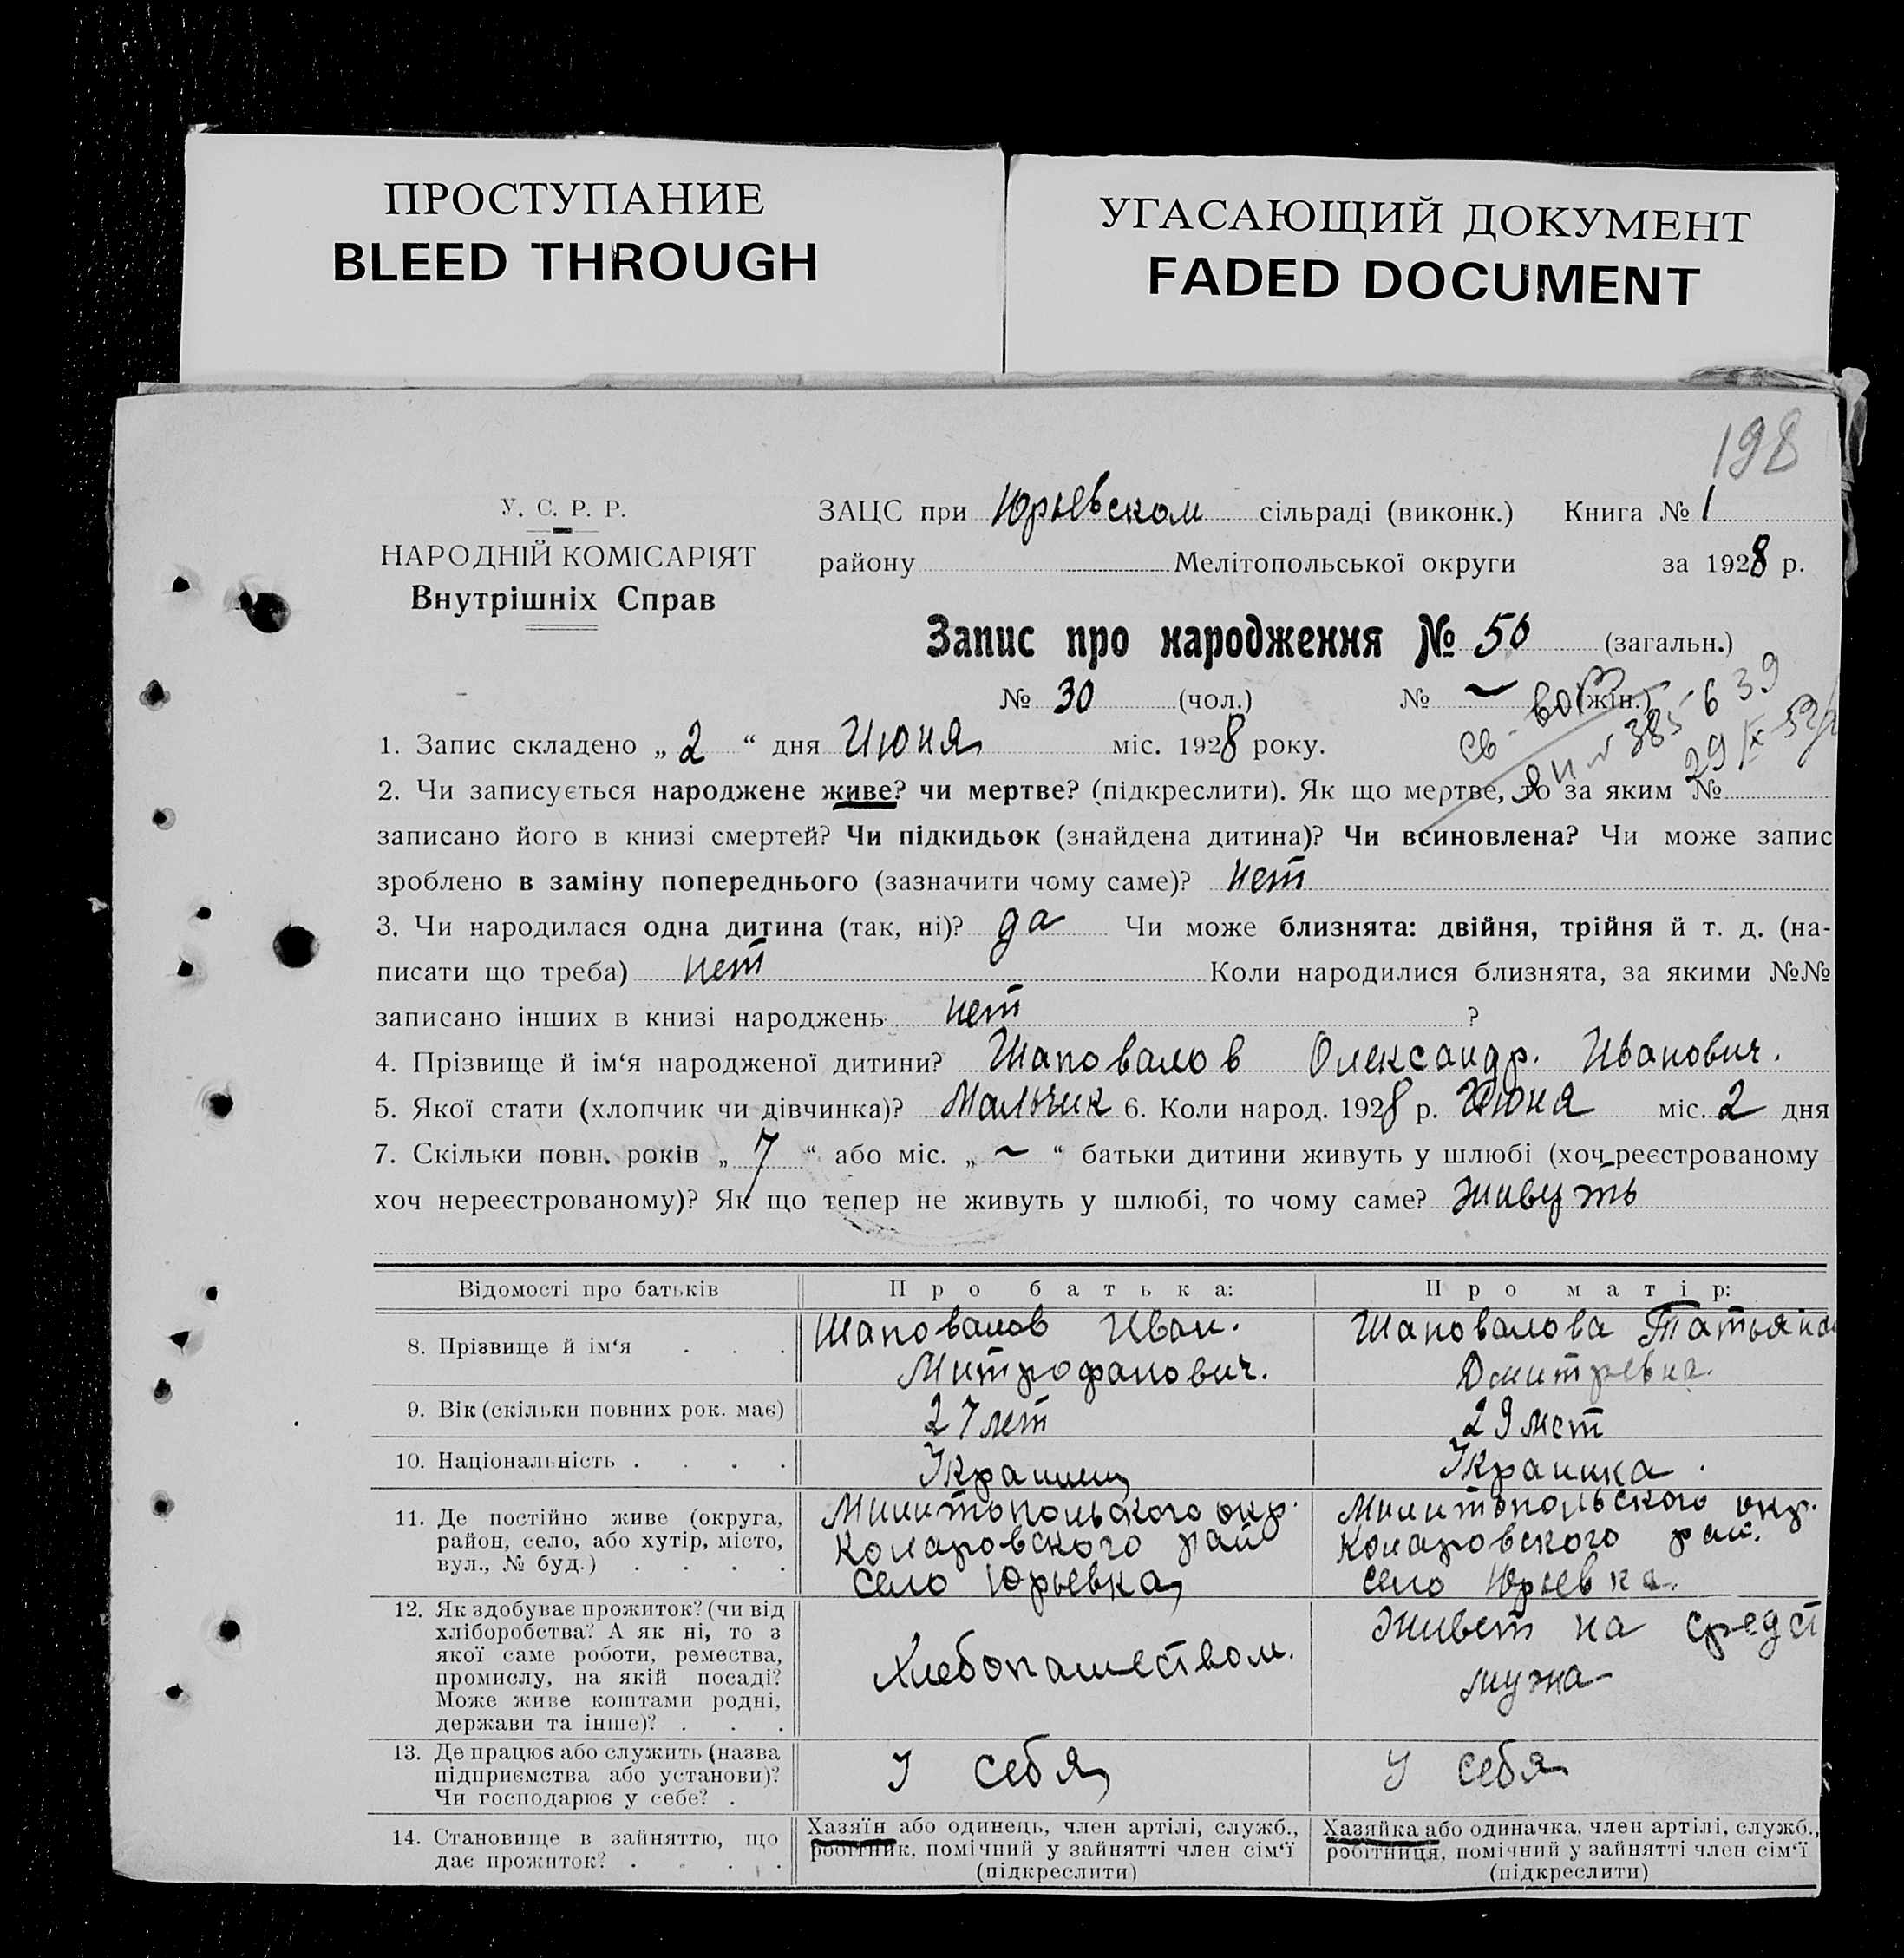 ПРОСТУПАНИЕ
BLEED THROUGH
УГАСАЮЩИЙ ДОКУМЕНТ
FADED DOCUMENT
198
У. С. Р. Р.
НАРОДНІЙ КОМІСАРІЯТ
Внутрішніх Справ
ЗАЦС при Юрьевском сільраді (виконк.) Книга № 1
району Мелітопольської округи за 1928 р.
Запис про народження № 50 (загальн.)
№ 30 (чол.) № ~ (жін.)
1. Запис складено „ 2 “ дня Июня міс. 1928 року.
2. Чи записується народжене живе? чи мертве? (підкреслити). Як що мертве, то за яким №
записано його в книзі смертей? Чи підкидьок (знайдена дитина)? Чи всиновлена? Чи може запис
зроблено в заміну попереднього (зазначити чому саме)? нет
3. Чи народилася одна дитина (так, ні)? да Чи може близнята: двійня, трійня й т. д. (на-
писати що треба) нет Коли народилися близнята, за якими №№
записано інших в книзі народжень нет ?
4. Прізвище й ім‘я народженої дитини? Шаповалов Олександр. Иванович.
5. Якої стати (хлопчик чи дівчинка)? Мальчик 6. Коли народ. 1928 р. Июня міс. 2 дня
7. Скільки повн. років „ 7 “ або міс. „ ~ “ батьки дитини живуть у шлюбі (хоч реєстрованому
хоч нереєстрованому)? Як що тепер не живуть у шлюбі, то чому саме? живуть
Відомості про батьків Про батька: Про матір:
8. Прізвище й ім‘я . . . Шаповалов Иван. Шаповалова Татьяна
Митрофанович. Дмитревна.
9. Вік (скільки повних рок. має) 27 лет 29 лет
10. Національність . . . . Украинец Украинка.
11. Де постійно живе (округа,
район, село, або хутір, місто,
вул., № буд.) . . . .
Милитопольского окр.
Комаровского рай
село Юрьевка
Милитопольского окр.
Комаровского рай.
село Юрьевка.
12. Як здобуває прожиток? (чи від
хліборобства? А як ні, то з
якої саме роботи, ремества,
промислу, на якій посаді?
Може живе коштами родні,
держави та інше)? . . .
Хлебопашеством.
Живет на средст
мужа
13. Де працює або служить (назва
підприємства або установи)?
Чи господарює у себе? .
У себя
У себя
14. Становище в зайняттю, що
дає прожиток? . . . .
Хазяїн або одинець, член артілі, служб.,
робітник, помічний у зайнятті член сім‘ї
(підкреслити)
Хазяйка або одиначка, член артілі, служб.,
робітниця, помічний у зайнятті член сім‘ї
(підкреслити)